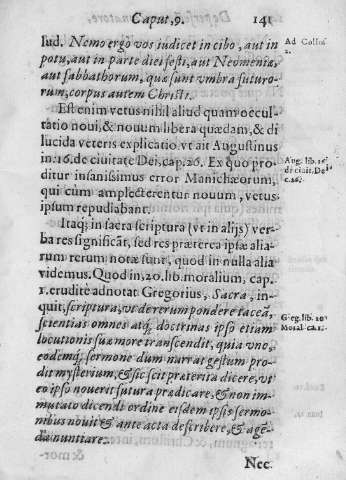 Caput, 9. 141
Iud. Nemo ergo vos iudicet in cibo, aut in
potu, aut in parte diei festi, aut Neomeniæ,
aut sabbathorum, quæ sunt vmbra futuro-
rum, corpus autem Christi.
Est enim vetus nihil aliud quam occul-
tatio noui, & nouum libera quædam, & di
lucida veteris explicatio. vt ait Augustinus
in. 16. de ciuitate Dei, cap. 26. Ex quo pro-
ditur insanissimus error Manichæorum,
qui cùm amplecterentur nouum, vetus
ipsum repudiabant.
Itaq; in sacra scriptura (vt in alijs) ver-
ba res significāt, sed res præterea ipsæ alia-
rum rerum notæ sunt, quod in nulla alia
videmus. Quod in. 20. lib. moralium, cap.
1. eruditè adnotat Gregorius, Sacra, in-
quit, scriptura, vt de rerum pondere taceā,
scientias omnes atq; doctrinas ipso etiam
locutionis suæ more transcendit, quia vno,
eodemq; sermone dum narrat gestum pro-
dit mysterium, & sic scit præterita dicere, vt
eo ipso nouerit futura prædicare, & non im-
mutato dicendi ordine eisdem ipsis sermo-
nibus nouit & ante acta describere, & agē-
da nuntiare.
Nec
Ad Collos.
2.
Aug. lib. 16
de ciuit. De
c. 26.
Greg. lib. 20
Moral. ca. 1.